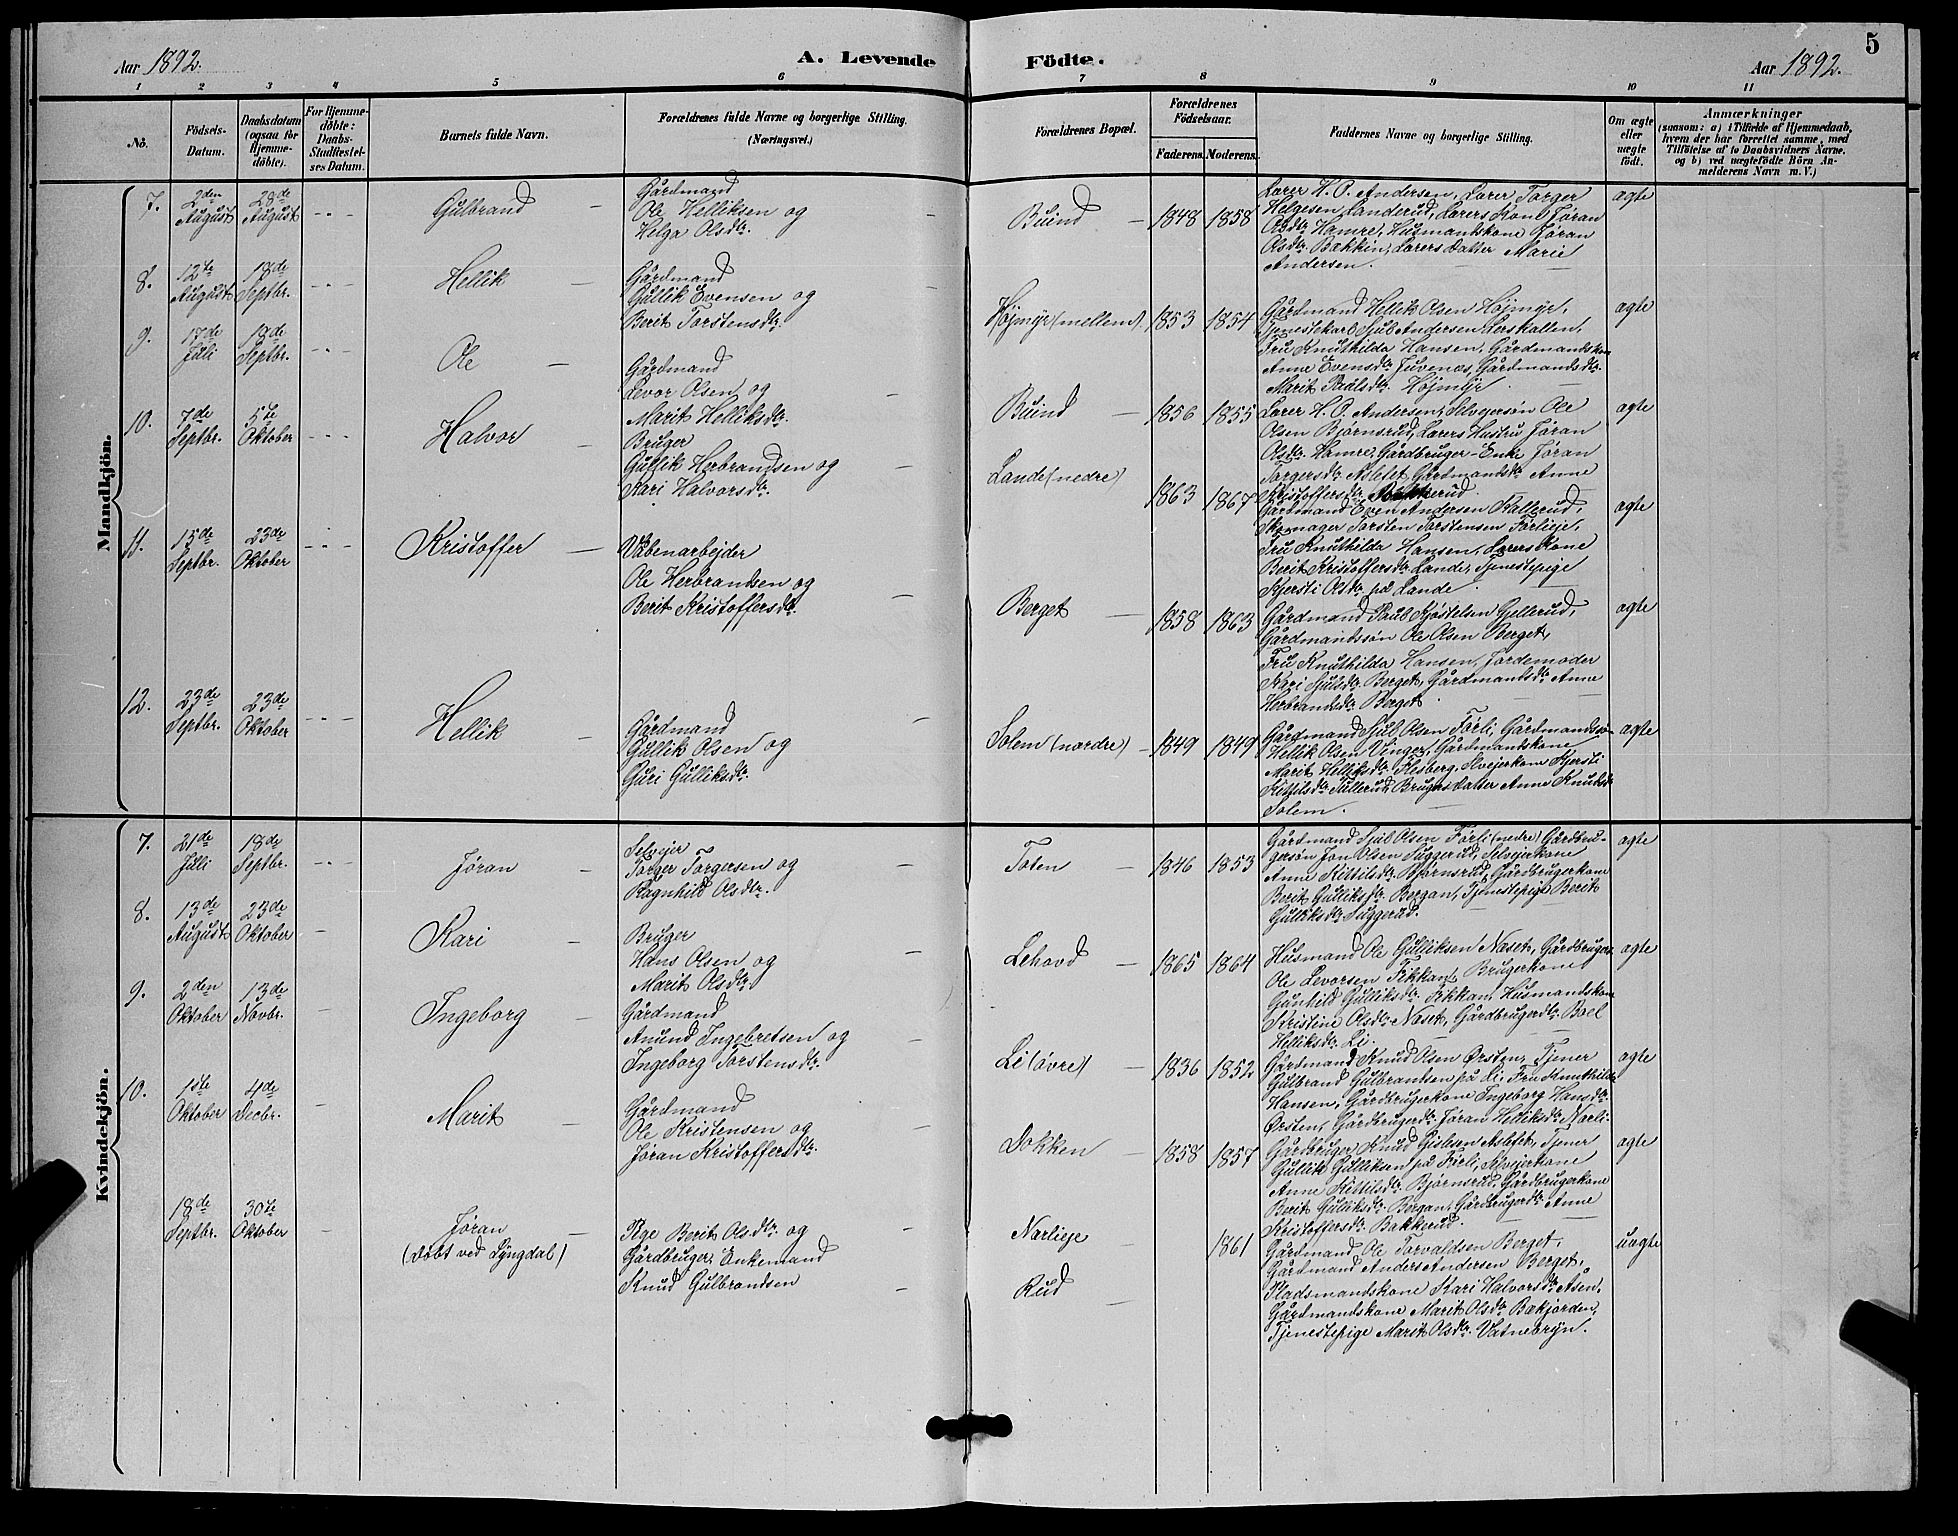 Aar 1892.
A. Levende Födte.
Aar 1892.
5
1 2 3 4 5 6 7 8 9 10 11
No.
Födsels-Datum.
Daabsdatum (ogsaa for Hjemme-döbte).
For Hjemme-döbte: Daabs-Stadfæstel-ses Datum.
Barnets fulde Navn.
Forældrenes fulde Navne og borgerlige Stilling. (Næringsvei.)
Forældrenes Bopæl.
Forældrenes Födselsaar.
Faderens. Moderens.
Faddernes Navne og borgerlige Stilling.
Om ægte eller uægte födt.
Anmærkninger
(saasom: a) i Tilfælde af Hjemmedaab,
hvem der har forrettet samme, med
Tilföielse af to Daabsvidners Navne.
og b) ved uægtefödte Börn An-
melderens Navn m. V.)
Mandkjön.
7. 2den August 28de August - - - Gulbrand -
Gårdmand
Ole Helliksen og
Helga Olsdtr.
Buind - 1848 1858
Lærer H. O. Andersen, Lærer Torger
Helgesen Landerud, Lærers Kone Jøran
Olsdtr Hamre, Husmandskone Jøran
Olsdtr. Bækkin, Lærers Datter Marie
Andersen.
ægte
8. 12te August 18de Septbr. - - - Hellik -
Gårdmand
Gullik Evensen og
Berit Torstensdtr.
Højmyr (mellem) 1853 1854
Gårdmand Hellik Olsen Højmyr,
Tjenestekarl Sjul Andersen Lerskallen,
Fru Knuthilda Hansen, Gårdmandskone
Anne Evensdtr. Juvenæs, Gårdmandsdtr.
Marit Pålsdtr. Højmyr.
ægte
9. 17de Juli 18de Septbr. - - - Ole -
Gårdmand
Levor Olsen og
Marit Helliksdtr.
Buind - 1856 1855
Lærer H. O. Andersen, Selvejersøn Ole
Olsen Bjørnsrud, Lærers Hustru Jøran
Olsdtr. Hamre, Gårdbruger-Enke Jøran
Torgersdtr. Aslefet, Gårdmandsdtr. Anne
Kristoffersdtr. Bakkerud.
ægte
10. 7de Septbr. 5te Oktober - - - Halvor -
Bruger
Gullik Herbrandsen og
Kari Halvorsdtr.
Lande (nedre) 1863 1867
Gårdmand Even Andersen Kallerud,
Skomager Torsten Torstensen Førlieje,
Fru Knuthilda Hansen, Lærers Kone
Berit Kristoffersdtr. Lande, Tjenestepige
Kjersti Olsdtr. på Lande.
ægte
11. 15de Septbr. 23de Oktober - - - Kristoffer -
Våbenarbejder
Ole Herbrandsen og
Berit Kristoffersdtr.
Berget - 1858 1863
Gårdmand Paul Kjøstelsen Gjellerud,
Gårdmandssøn Ole Olsen Berget,
Fru Knuthilda Hansen, Jordemoder
Kari Sjulsdtr. Berget, Gårdmandsdtr Anne
Herbrandsdtr. Berget.
ægte
12. 23de Septbr. 23de Oktober - - - Hellik -
Gårdmand
Gullik Olsen og
Guri Gulliksdtr.
Solem (nordre) - 1849 1849
Gårdmand Sjul Olsen Førli, Gårdmandssøn
Hellik Olsen Vinger, Gårdmandskone
Marit Helliksdtr. Flesberg, Selvejerkone Kjersti
Kittilsdtr. Tullerud, Brugersdatter Anne Knudsdtr
Solem.
ægte
Kvindekjön.
7. 21de Juli 18de Septbr. - - - Jøran -
Selvejer
Torger Torgersen og
Ragnhild Olsdtr.
Toten - 1846 1853
Gårdmand Sjul Olsen Førli (nedre) Gårdbru-
gersøn Jon Olsen Tuggerud, Selvejerkone
Anne Kittilsdtr. Bjørnsrud, Gårdbrugerkone
Berit Gulliksdtr. Bergan, Tjenestepige Berit
Gulliksdtr Tuggerud.
ægte
8. 13de August 23de Oktober - Kari -
Bruger
Hans Olsen og
Marit Olsdtr.
Lehovd - 1865 1864
Husmand Ole Gulliksen Næset, Gårdbruger
Ole Levorsen Fikkan, Brugerkone
Gunhild Gulliksdtr. Fikkan, Husmandskone
Kristine Olsdtr Næset, Gårdbrugerdtr. Boel
Helliksdtr. Li.
ægte
9. 2den Oktober 13de Novbr. - Ingeborg -
Gårdmand
Anund Ingebretsen og
Ingeborg Torstensdtr.
Li (øvre) - 1836 1852
Gårdmand Knud Olsen Ørsten, Tjener
Gulbrand Gulbrandsen på Li, Fru Knuthilda
Hansen, Gårdbrugerkone Ingeborg Hansdtr.
Ørsten, Gårdbrugerdtr. Jøran Helliksdtr. Nørli.
ægte
10. 1ste Oktober 4de Decbr. - Marit -
Gårdmand
Ole Kristensen og
Jøran Kristoffersdtr.
Dokken - 1858 1857
Gårdbruger Knud Gislesen Aslefet, Tjener
Gullik Gulliksen på Førli, Selvejerkone
Anne Kittilsdtr. Bjørnsrud, Gårdbrugerkone
Berit Gulliksdtr. Bergan, Gårdbrugerdtr. Anne
Kristoffersdtr. Bakkerud.
ægte
18de Septbr. 30te Oktober - Jøran -
(døbt ved Lyngdal)
Pige Berit Olsdtr. og
Gårdbruger, Enkemand
Knud Gulbrandsen
Nørlieje -
Rud -
1861
Gårdmand Ole Torvaldsen Berget,
Gårdmand Anders Andersen Berget,
Pladsmandskone Kari Halvorsdtr. Åsen,
Gårdmandskone Marit Olsdtr. Bækjorden,
Tjenestepige Marit Olsdtr. Vatnebryn.
uægte